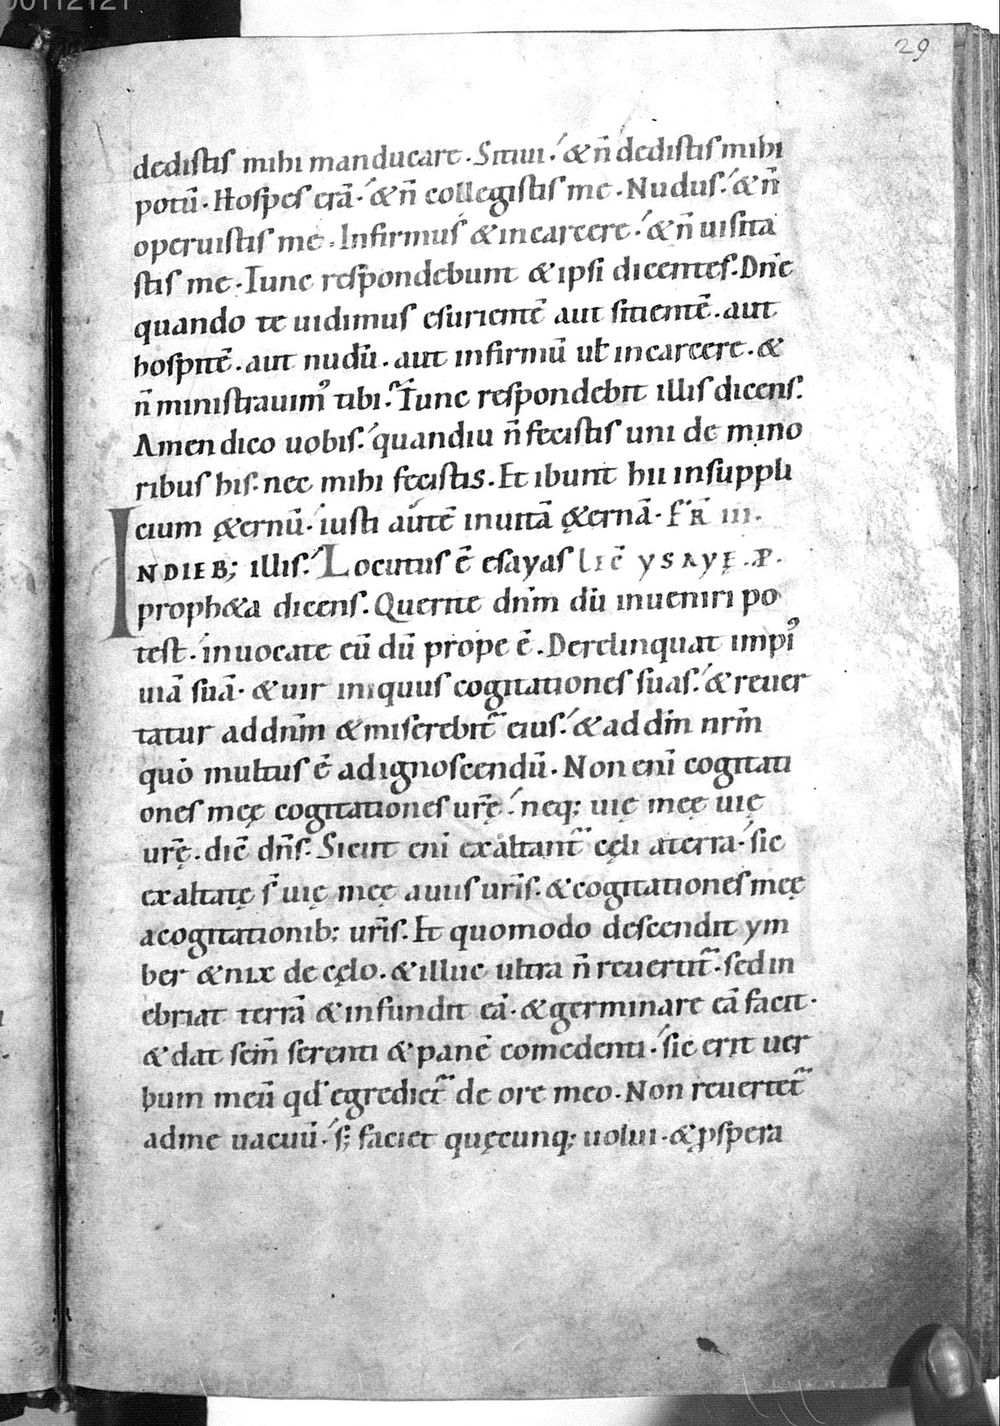 00112121
29
dedistis mihi manducare. Sitiui. & n̄ dedistis mihi
potū. Hospes erā. & n̄ collegistis me. Nudus. & n̄
operuistis me. Infirmus & incarcere. & n̄ uisita
stis me. Tunc respondebunt & ipsi dicentes. Dn̄e
quando te uidimus esurientē aut sitientē. aut
hospitē. aut nudū. aut infirmū ut̄ incarcere. &
n̄ ministrauim' tibi. Tunc respondebit illis dicens.
Amen dico uobis. quandiu n̄ fecistis uni de mino
ribus his. nec mihi fecistis. Et ibunt hii insuppli
cium &ernū. iusti autē inuitā &ernā. Fr̄ III.
INDIEB; illis. Locutus ē esayas Lec̄ ysayę .P.
proph&a dicens. Querite dn̄m dū inueniri po
test. inuocate eū dū prope ē. Derelinquat impi'
uiā suā. & uir iniquus cogitationes suas. & reuer
tatur addn̄m & miserebit̄ eius. & addm̄ nr̄m
quō multus ē adignoscendū. Non eni cogitati
ones meę cogitationes ur̄ę. neq; uię meę uię
ur̄ę. dic̄ dn̄s. Sicut eni exaltant̄ cęli aterra. sic
exaltatę s̄ uię meę auiis ur̄is. & cogitationes meę
acogitationib; ur̄is. Et quomodo descendit ym
ber & nix de cęlo. & illuc ultra n̄ reuertit̄. sed in
ebriat terrā & infundit eā. & germinare eā facit.
& dat sem̄ serenti & panē comedenti. sic erit uer
bum meū qd̄ egrediet̄ de ore meo. Non reuertet̄
adme uacuū. s; faciet quęcunq; uolui. & p̱spera